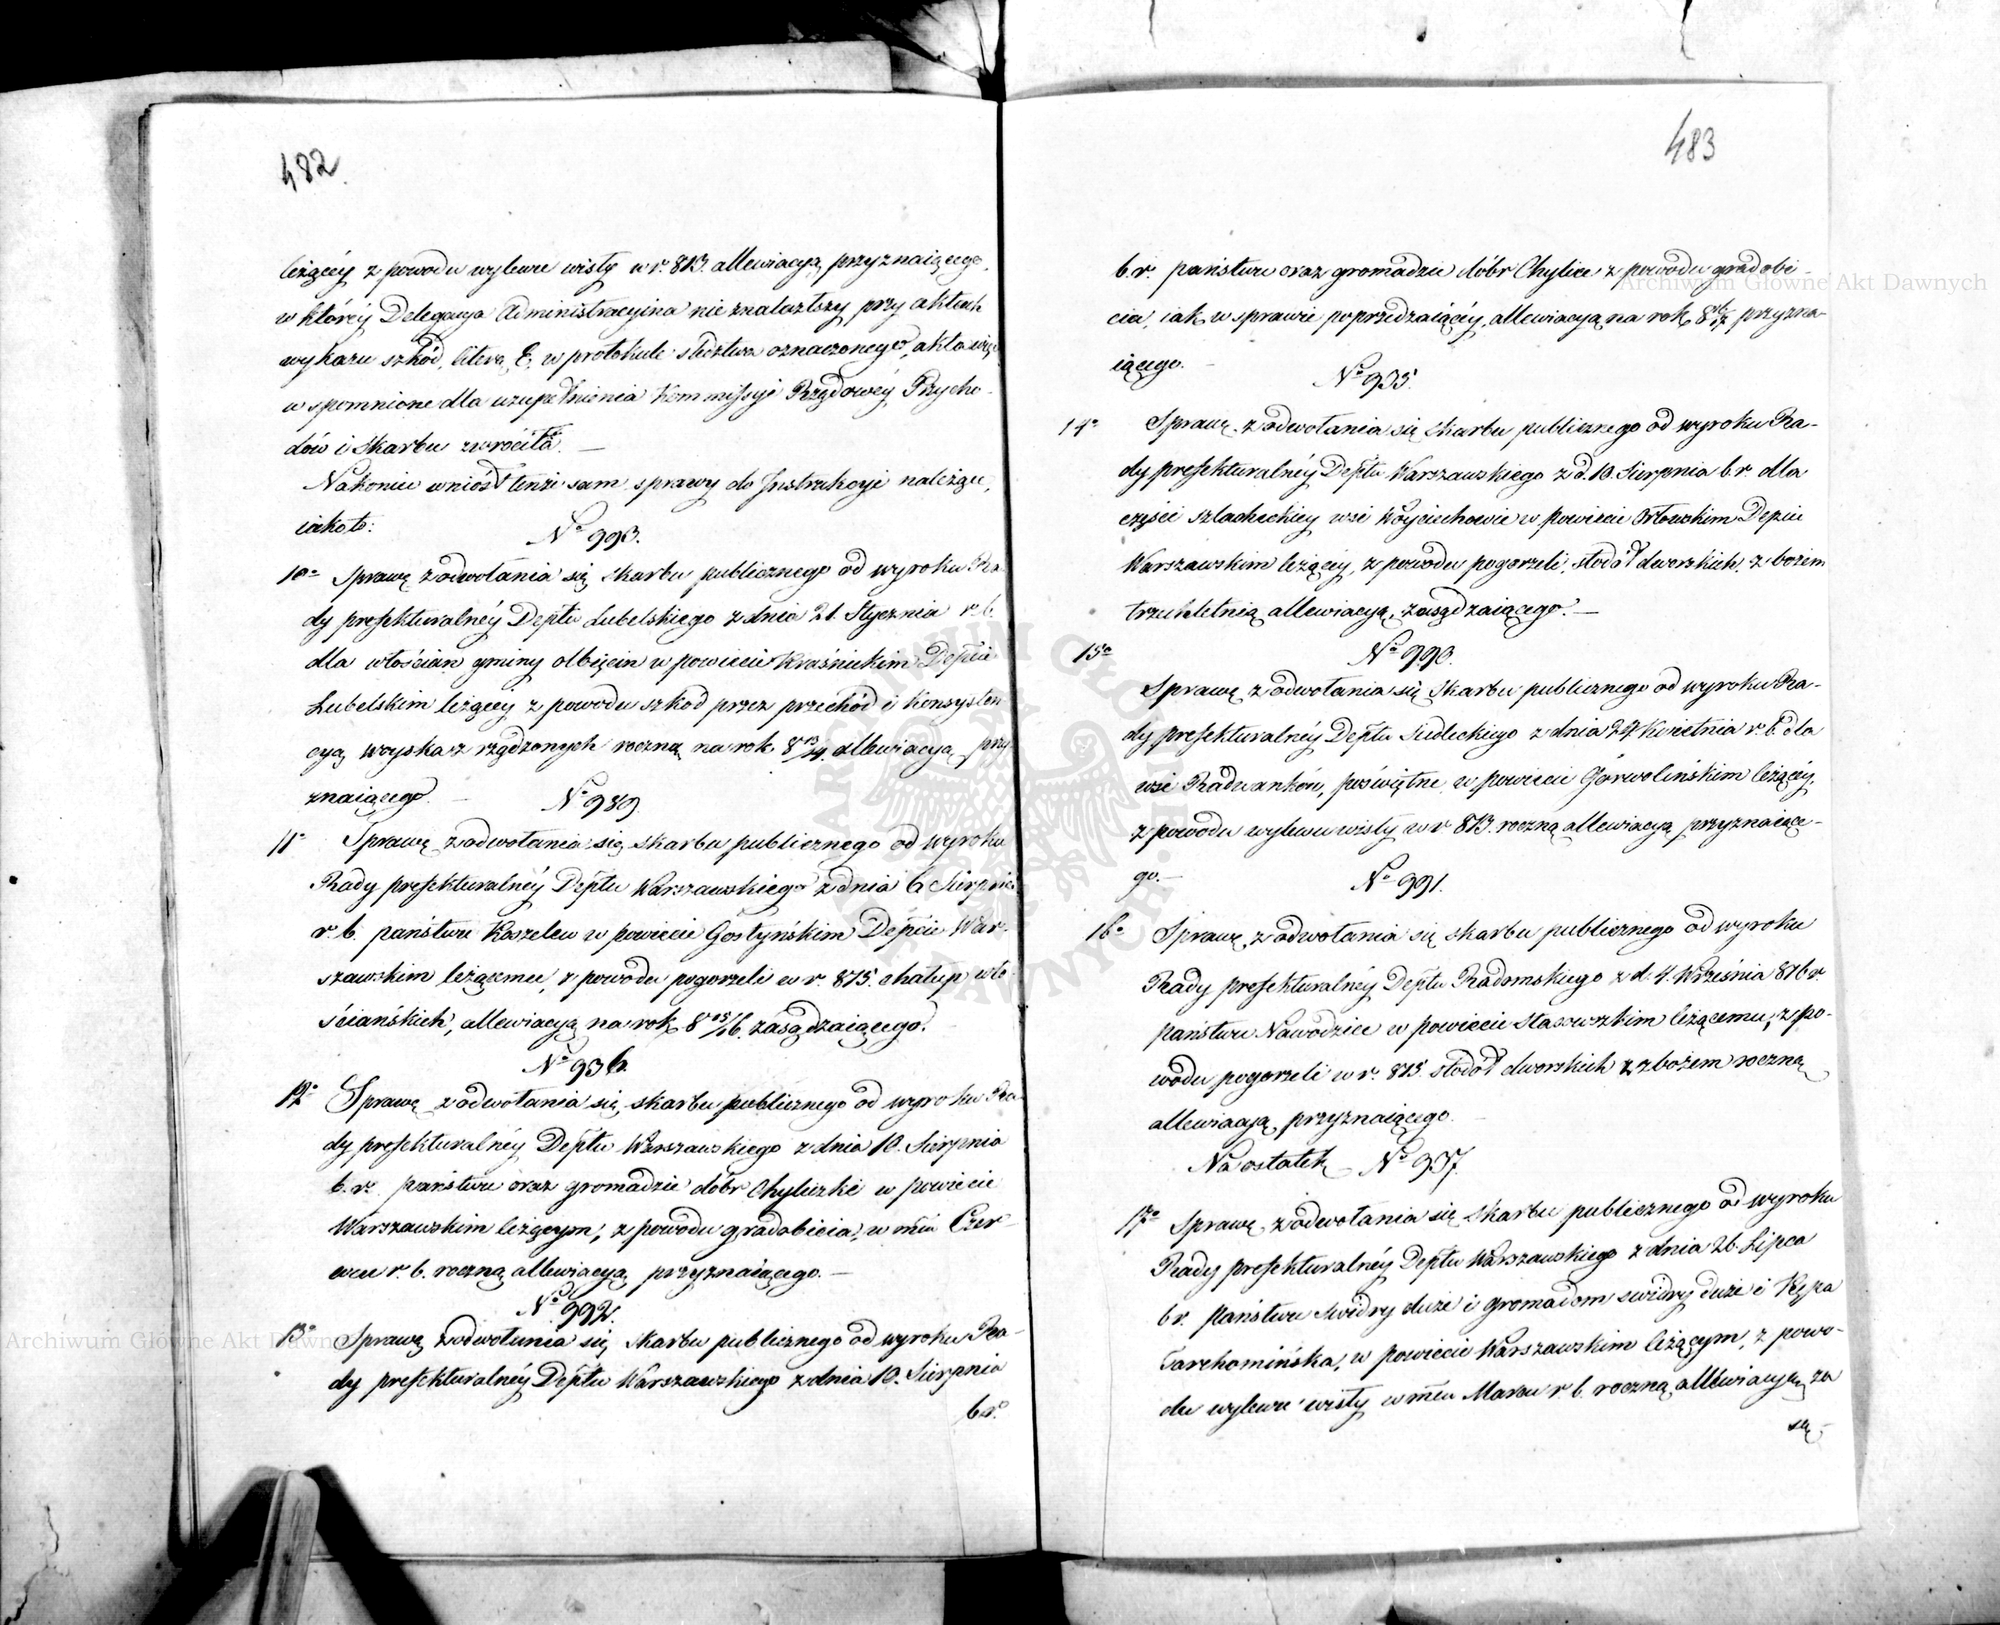 482.
leżącéy z powodu wylewu wisły w r. 813. allewiacyą przyznaiącego,
w któréy Delegacya Administracyina nieznalazłszy przy aktach
wykazu szkód, litera E, w protokule śledztwa oznaczonego, akta więc
wspomnione dla uzupełnienia Kommissyi Rządowéy Przycho-
dów i Skarbu zwróciła. —
Nakoniec wniosł tenże sam sprawy do Instrukcyi należące,
iako to:
No 993.
10o Sprawę z odwołania się skarbu publicznego od wyroku Ra
dy prefekturalnéy Deptu Lubelskiego z dnia 21. Stycznia r. b.
dla włościan gminy olbięcin w powiecie Kraśnickim Depcie
Lubelskim leżącey z powodu szkod przez przechód i konsysten
cyą woyska zrządzonych roczną na rok 813/14. allewiacyą przy
znaiącego. —
No 989.
11o Sprawę z odwołania się skarbu publicznego od wyroku
Rady prefekturalnéy Deptu Warszawskiego z dnia 6 Sierpnia
r. b. państwu Koszelew w powiecie Gostyńskim Depcie War-
szawskim leżącemu, z powodu pogorzeli w r. 815. chałup wło-
ściańskich, allewiacyą na rok 815/16. zasądzaiącego. —
No 936.
12o Sprawę z odwołania się skarbu publicznego od wyroku Ra
dy prefekturalnéy Deptu Warszawskiego z dnia 10. Sierpnia
b. r. państwu oraz gromadzie dóbr Chyliczki w powiecie
Warszawskim leżącym, z powodu gradobicia, w mcu Czer-
wcu r. b. roczną allewiacyą przyznaiącego. —
No 992.
13o Sprawę z odwołania się skarbu publicznego od wyroku Ra-
dy prefekturalnéy Deptu Warszawskiego z dnia 10. Sierpnia
b. r.
483
b. r. państwu oraz gromadzie dóbr Chylice z powodu gradobi-
cia, iak w sprawie poprzedzaiącéy, allewiacyą na rok 816/17 przyzna-
iącego. —
No 935.
14o Sprawę z odwołania się skarbu publicznego od wyroku Ra-
dy prefekturalnéy Deptu Warszawskiego z d. 10. Sierpnia b. r. dla
częsci szlacheckiey wsi Woyciechowic w powiecie Orłowskim Depcie
Warszawskim leżącéy, z powodu pogorzeli, stodół dworskich z bożem
trzechletnią allewiacyą, zasądzaiącego. —
No 990.
15o Sprawę z odwołania się skarbu publicznego od wyroku Ra-
dy prefekturalnéy Deptu Siedleckiego z dnia 24 Kwietnia r. b. dla
wsi Radwanków, poświętne w powiecie Garwolińskim leżącéy,
z powodu wylewu wisły w r. 813. roczną allewiacyą przyznaiące-
go. —
No 991.
16o Sprawę z odwołania się skarbu publicznego od wyroku
Rady prefekturalnéy Deptu Radomskiego z d. 4. Września 816 r.
państwu Nawodzice w powiecie staszowskim leżącemu, z po-
wodu pogorzeli w r. 815. stodół dworskich z zbożem roczną
allewiacyą przyznaiącego. —
Na ostatek No 937.
17o Sprawę z odwołania się skarbu publicznego od wyroku
Rady prefekturalnéy Deptu Warszawskiego z dnia 26. Lipca
b r. państwu swidry duże i gromadom swidry duże i Kępa
Tarchomińska, w powiecie Warszawskim leżącym, z powo-
du wylewu wisły w mcu Marcu r. b. roczną allewiacyą, za
są-
Archiwum Główne Akt Dawnych
Archiwum Główne Akt Dawnych